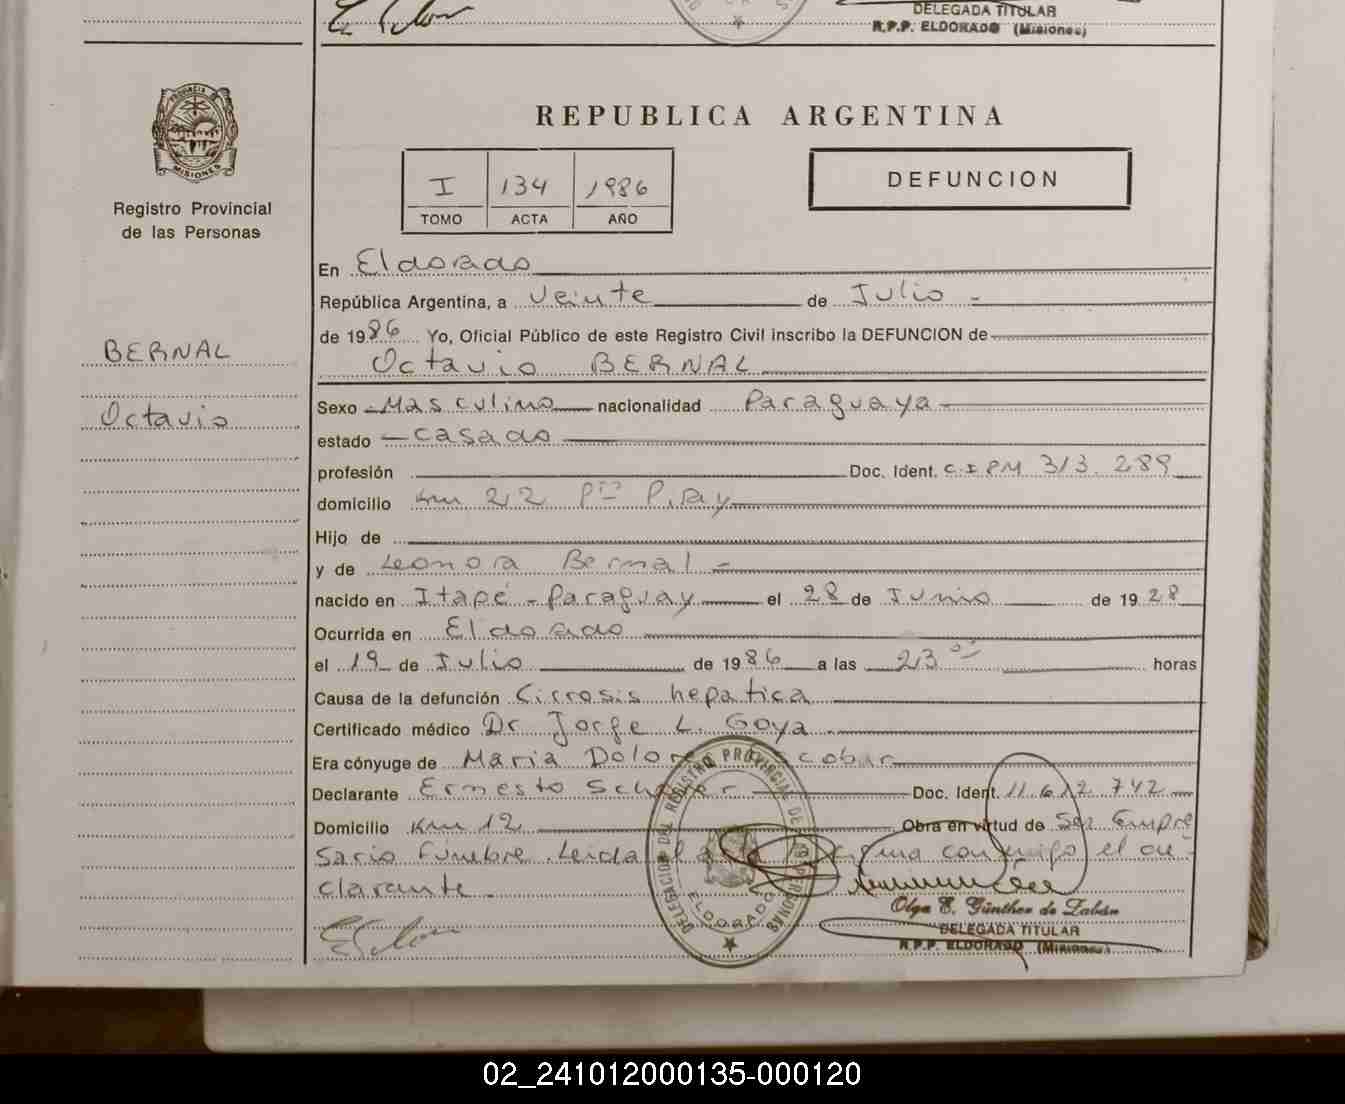 DELEGADA TITULAR
R.P.P. ELDORADO (Misiones)
PROVINCIA DE
MISIONES
Registro Provincial
de las Personas
BERNAL
Octavio
REPUBLICA ARGENTINA
I 134 1986
TOMO ACTA AÑO
DEFUNCION
En Eldorado
República Argentina, a veinte de Julio -
de 1986 Yo, Oficial Público de este Registro Civil inscribo la DEFUNCION de
Octavio BERNAL
Sexo Masculino nacionalidad Paraguaya -
estado casado
profesión Doc. Ident. C.I PM 313.289
domicilio Km 22 Pto Piray
Hijo de
y de Leonora Bernal -
nacido en Itapé - Paraguay el 28 de Junio de 1928
Ocurrida en Eldorado
el 19 de Julio de 1986 a las 23 00 horas
Causa de la defunción Cirrosis hepatica
Certificado médico Dr Jorge L. Goya -
Era cónyuge de Maria
Declarante Ernesto Doc. Ident. 11.612.742
Domicilio Km 12 Obra en virtud de Ser Empre
sario Fúnebre. Leida el acta la firma conmigo el de-
clarante -
DELEGACION DEL REGISTRO PROVINCIAL DE LAS PERSONAS
ELDORADO
Olga E. Günther de Zabán
DELEGADA TITULAR
R.P.P. ELDORADO (Misiones)
02_241012000135-000120